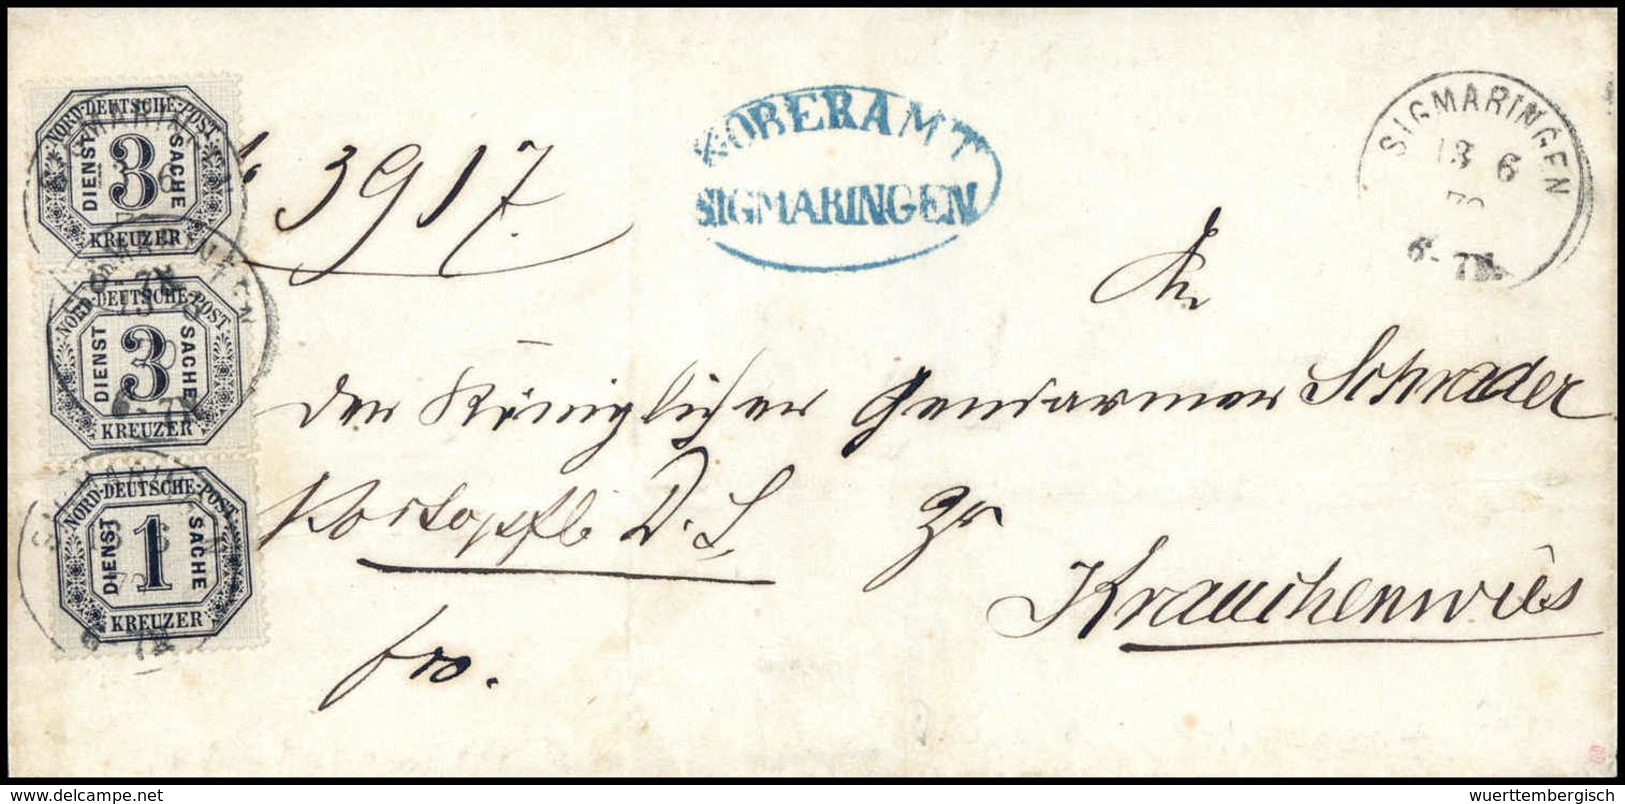 NORD-DEUTSCHE-POST
DIENST 3 SACHE
KREUZER
NORD-DEUTSCHE-POST
DIENST 3 SACHE
KREUZER
NORD-DEUTSCHE-POST
DIENST 1 SACHE
KREUZER
3917.
K.OBERAMT
SIGMARINGEN
SIGMARINGEN
13 6
6-7N.
An
den Königlichen Gendarmen Schrader
Portopfl. D. S. zu
Krauchenwies
fro.
© www.delcampe.net
wuerttembergisch